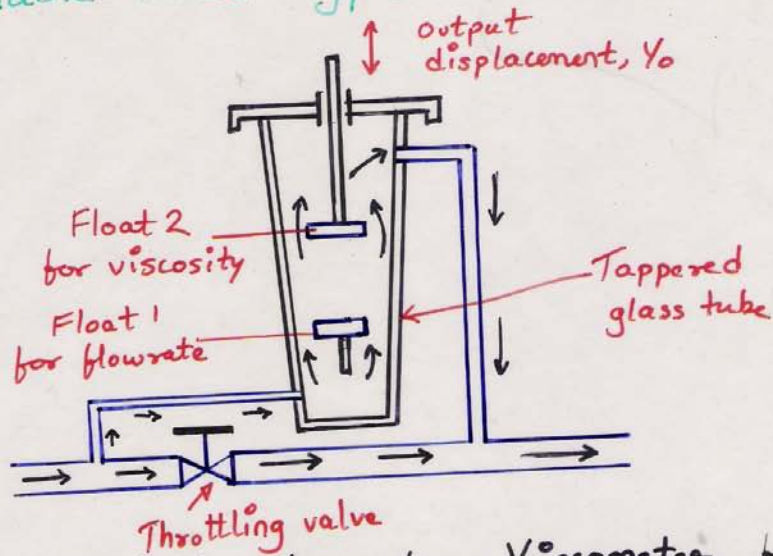 output
displacement, Yo
Float 2
for viscosity
Float 1
for flowrate
Tappered
glass tube
Throttling valve
Viscometer